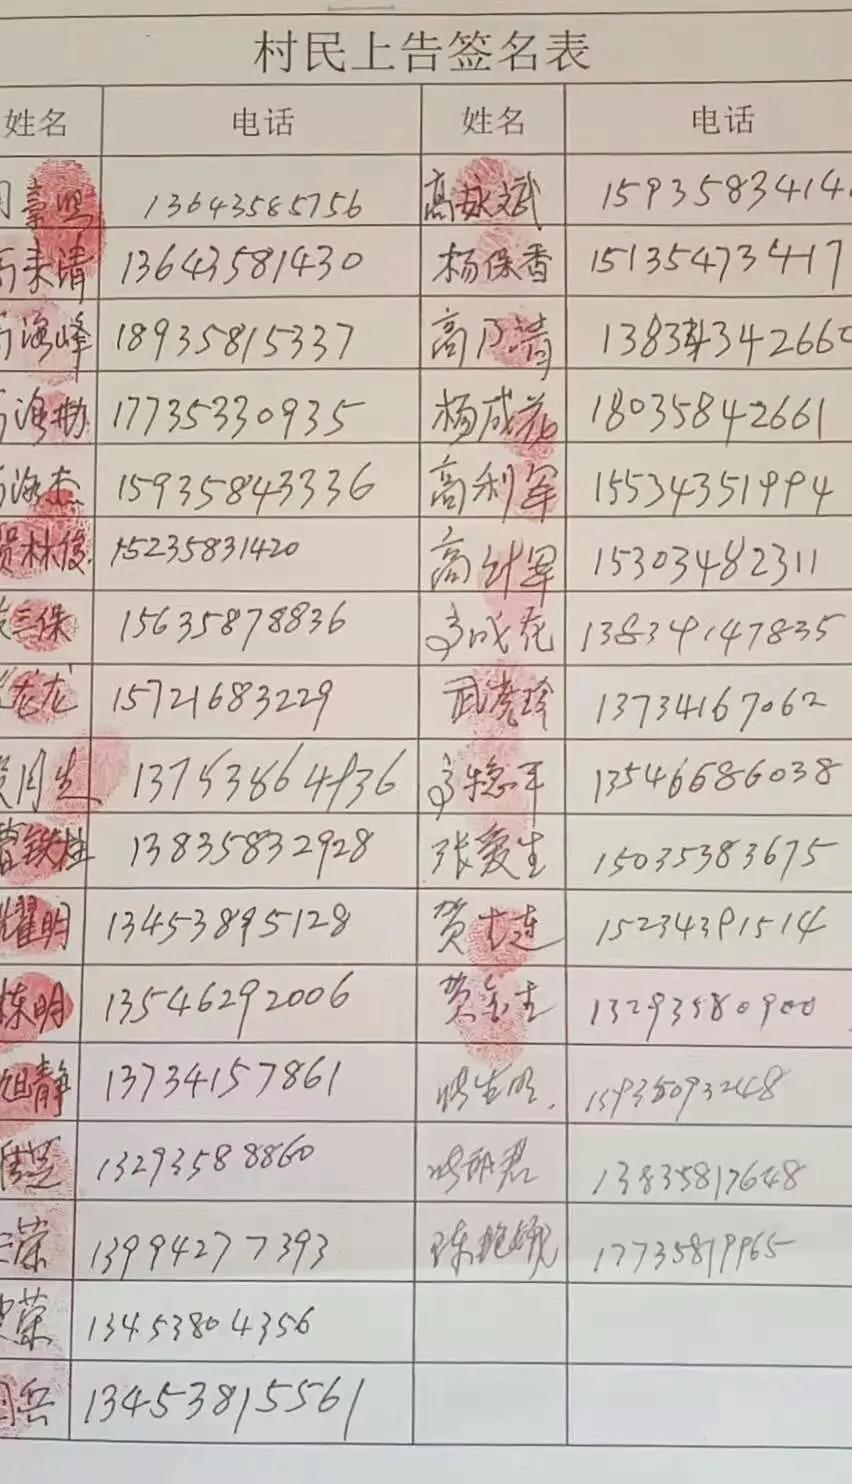 村民上告签名表
姓名 电话 姓名 电话
13643585756 高 斌 1593583414
来清 13643581430 杨保香 15135473417
海峰 18935815337 高乃清 1383434266
海 17735330935 杨成花 18035842661
海杰 15935843336 高利军 15534351994
贺林俊 15235831420 高计军 15303482311
三保 15635878836 高成花 13834147835
龙龙 15721683229 武 珍 13734167062
月生 13753864936 高 平 13546686038
曹铁柱 13835832928 张爱生 15035383675
耀明 13453895128 贺 连 15234391514
栋明 13546292006 贺 生 13293580900
旭静 13734157861
13293588860 13835817648
荣 13994277393 陈艳 17735819965
荣 13453804356
兵 13453815561